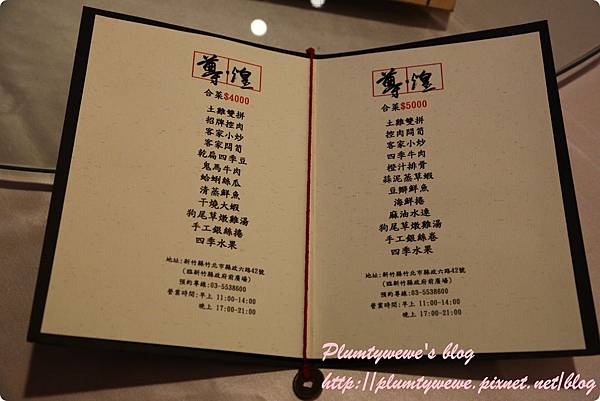 尊·煌
合菜$4000
土雞雙拼
招牌控肉
客家小炒
客家悶筍
乾扁四季豆
鬼馬牛肉
蛤蜊絲瓜
清蒸鮮魚
干燒大蝦
狗尾草燉雞湯
手工銀絲捲
四季水果
地址:新竹縣竹北市縣政六路42號
(臨新竹縣政府前廣場)
預約專線:03-5538600
營業時間:早上 11:00-14:00
晚上 17:00-21:00
尊·煌
合菜$5000
土雞雙拼
控肉悶筍
客家小炒
四季牛肉
橙汁排骨
蒜泥蒸草蝦
豆瓣鮮魚
海鮮捲
麻油水蓮
狗尾草燉雞湯
手工銀絲卷
四季水果
地址:新竹縣竹北市縣政六路42號
(臨新竹縣政府前廣場)
預約專線:03-5538600
營業時間:早上 11:00-14:00
晚上 17:00-21:00
Plumtywewe's blog
http://plumtywewe.pixnet.net/blog